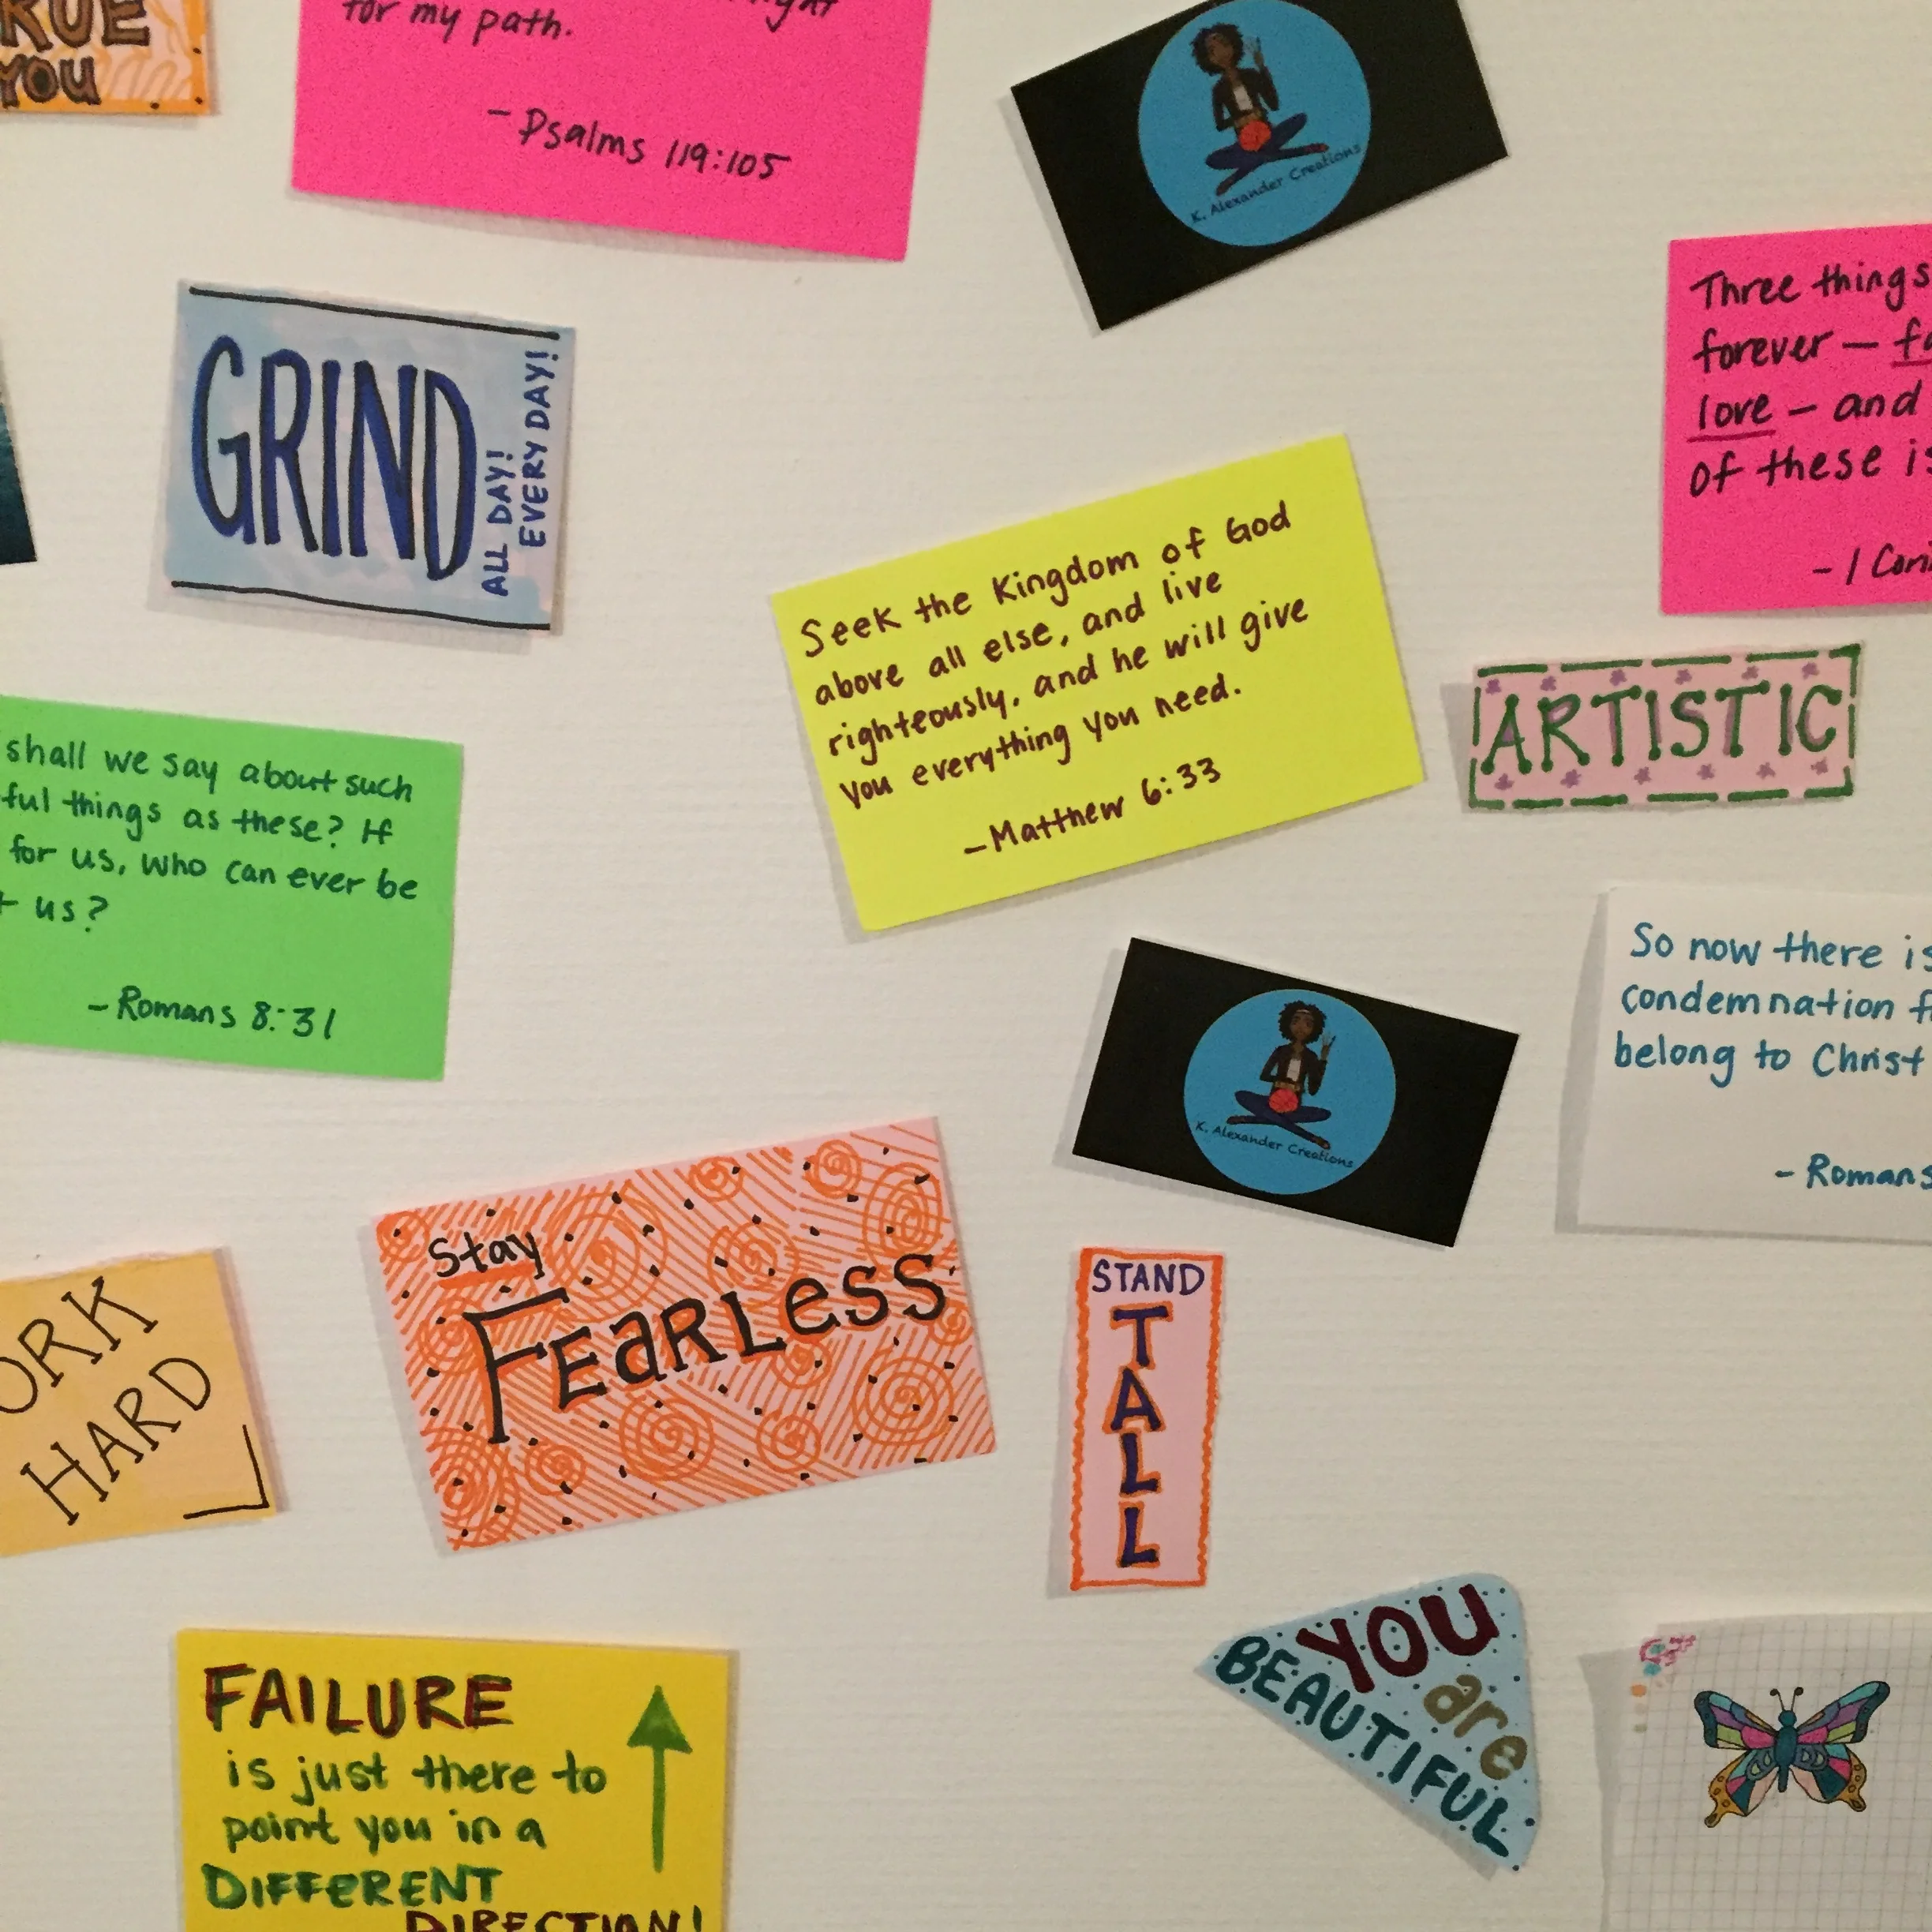 RUE
YOU
for my path.
- Psalms 119:105
K. Alexander Creations
GRIND
ALL DAY!
EVERY DAY!
Three things
forever —
love - and
of these is
- 1 Cori
Seek the Kingdom of God
above all else, and live
righteously, and he will give
you everything you need.
- Matthew 6:33
ARTISTIC
shall we say about such
ful things as these? If
for us, who can ever be
us?
- Romans 8:31
So now there is
condemnation f
belong to Christ
- Romans
K. Alexander Creations
Stay
FEARLESS
STAND
TALL
ORK
HARD
YOU
are
BEAUTIFUL
FAILURE
is just there to
point you in a
DIFFERENT
DIRECTION!